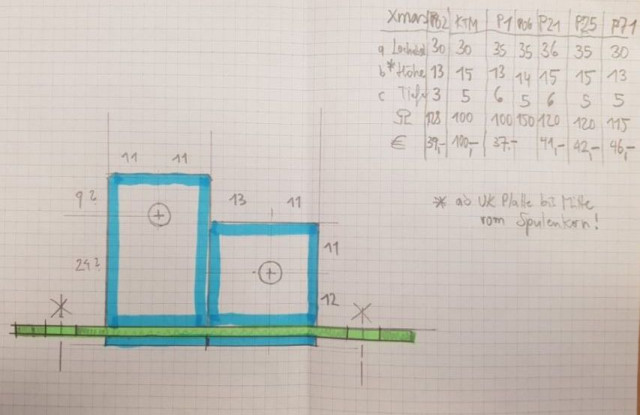 Xmas P02 KTM P1 P06 P21 P25 P71
a 30 30 35 35 36 35 30
b * Höhe 13 15 13 14 15 15 13
c Tiefe 3 5 6 5 6 5 5
Ω 128 100 100 150 120 120 115
€ 39,- 100,- 37.- 41,- 42,- 46,-
* ab UK Platte bis Mitte
vom Spulenkern!
11 11
9? 13 11
24? 11
12